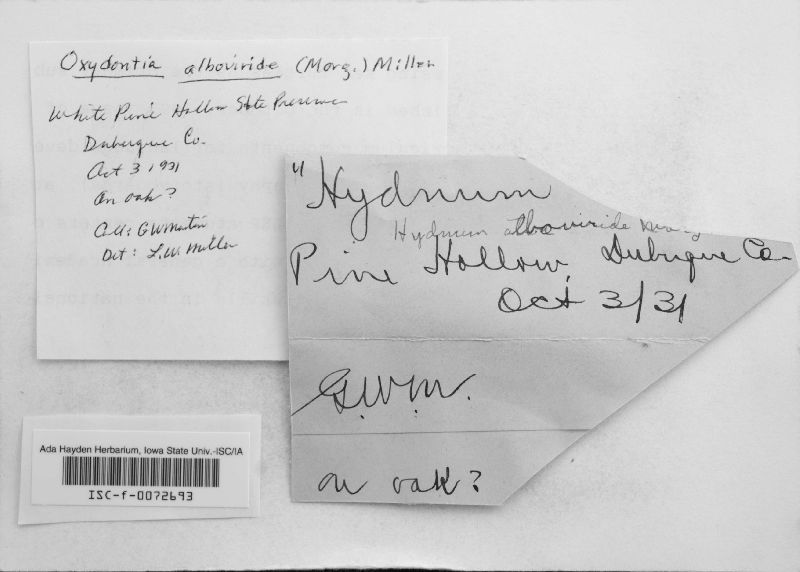 Oxydontia alboviride (Morg.) Miller
White Pine Hollow State Preserve
Dubuque Co.
Oct 3 1931
On oak?
Coll: GWMartin
Det: L.W. Miller
"Hydnum
Hydnum alboviride Morg.
Pine Hollow, Dubuque Co.
Oct 3/31
G.W.M.
on oak?
Ada Hayden Herbarium, Iowa State Univ.-ISC/IA
ISC-f-0072693